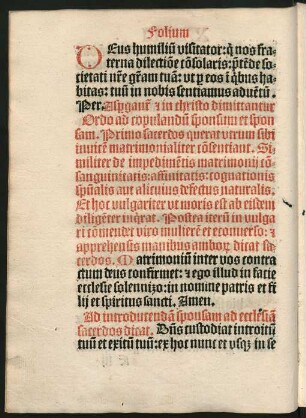 Folium
DEus humiliū visitator: q̄ nos fra
terna dilectiōe cōsolaris: p̄tēde so
cietati nr̄e gr̄am tuā: ut p̲ eos i q̄bus ha
bitas: tuū in nobis sentiamus aduētū.
Per. Asp̲gant̄ ⁊ in christo dimittantur
Ordo ad copulandū sponsum et spon
sam. Primo sacerdos querat utrum sibi
inuicē matrimonialiter cōsentiant. Si
militer de impedimētis matrimonij cō
sanguinitatis: affinitatis: cognationis
sp̄ualis aut alicuius defectus naturalis.
Et hoc vulgariter vt moris est ab eisdem
diligēter inq̄rat. Postea iterū in vulga
ri cōmendet viro mulierē et econuerso: ⁊
apprehensis manibus amboꝝ dicat sa
cerdos. Matrimoniū inter vos contra
ctum deus confirmet: ⁊ ego illud in facie
ecclesie solennizo: in nomine patris et fi
lij et spiritus sancti. Amen.
Ad introducendā sponsam ad ecclesiā
sacerdos dicat. Dn̄s custodiat introitū
tuū et exitū tuū: ex hoc nunc et vsqꝫ in se